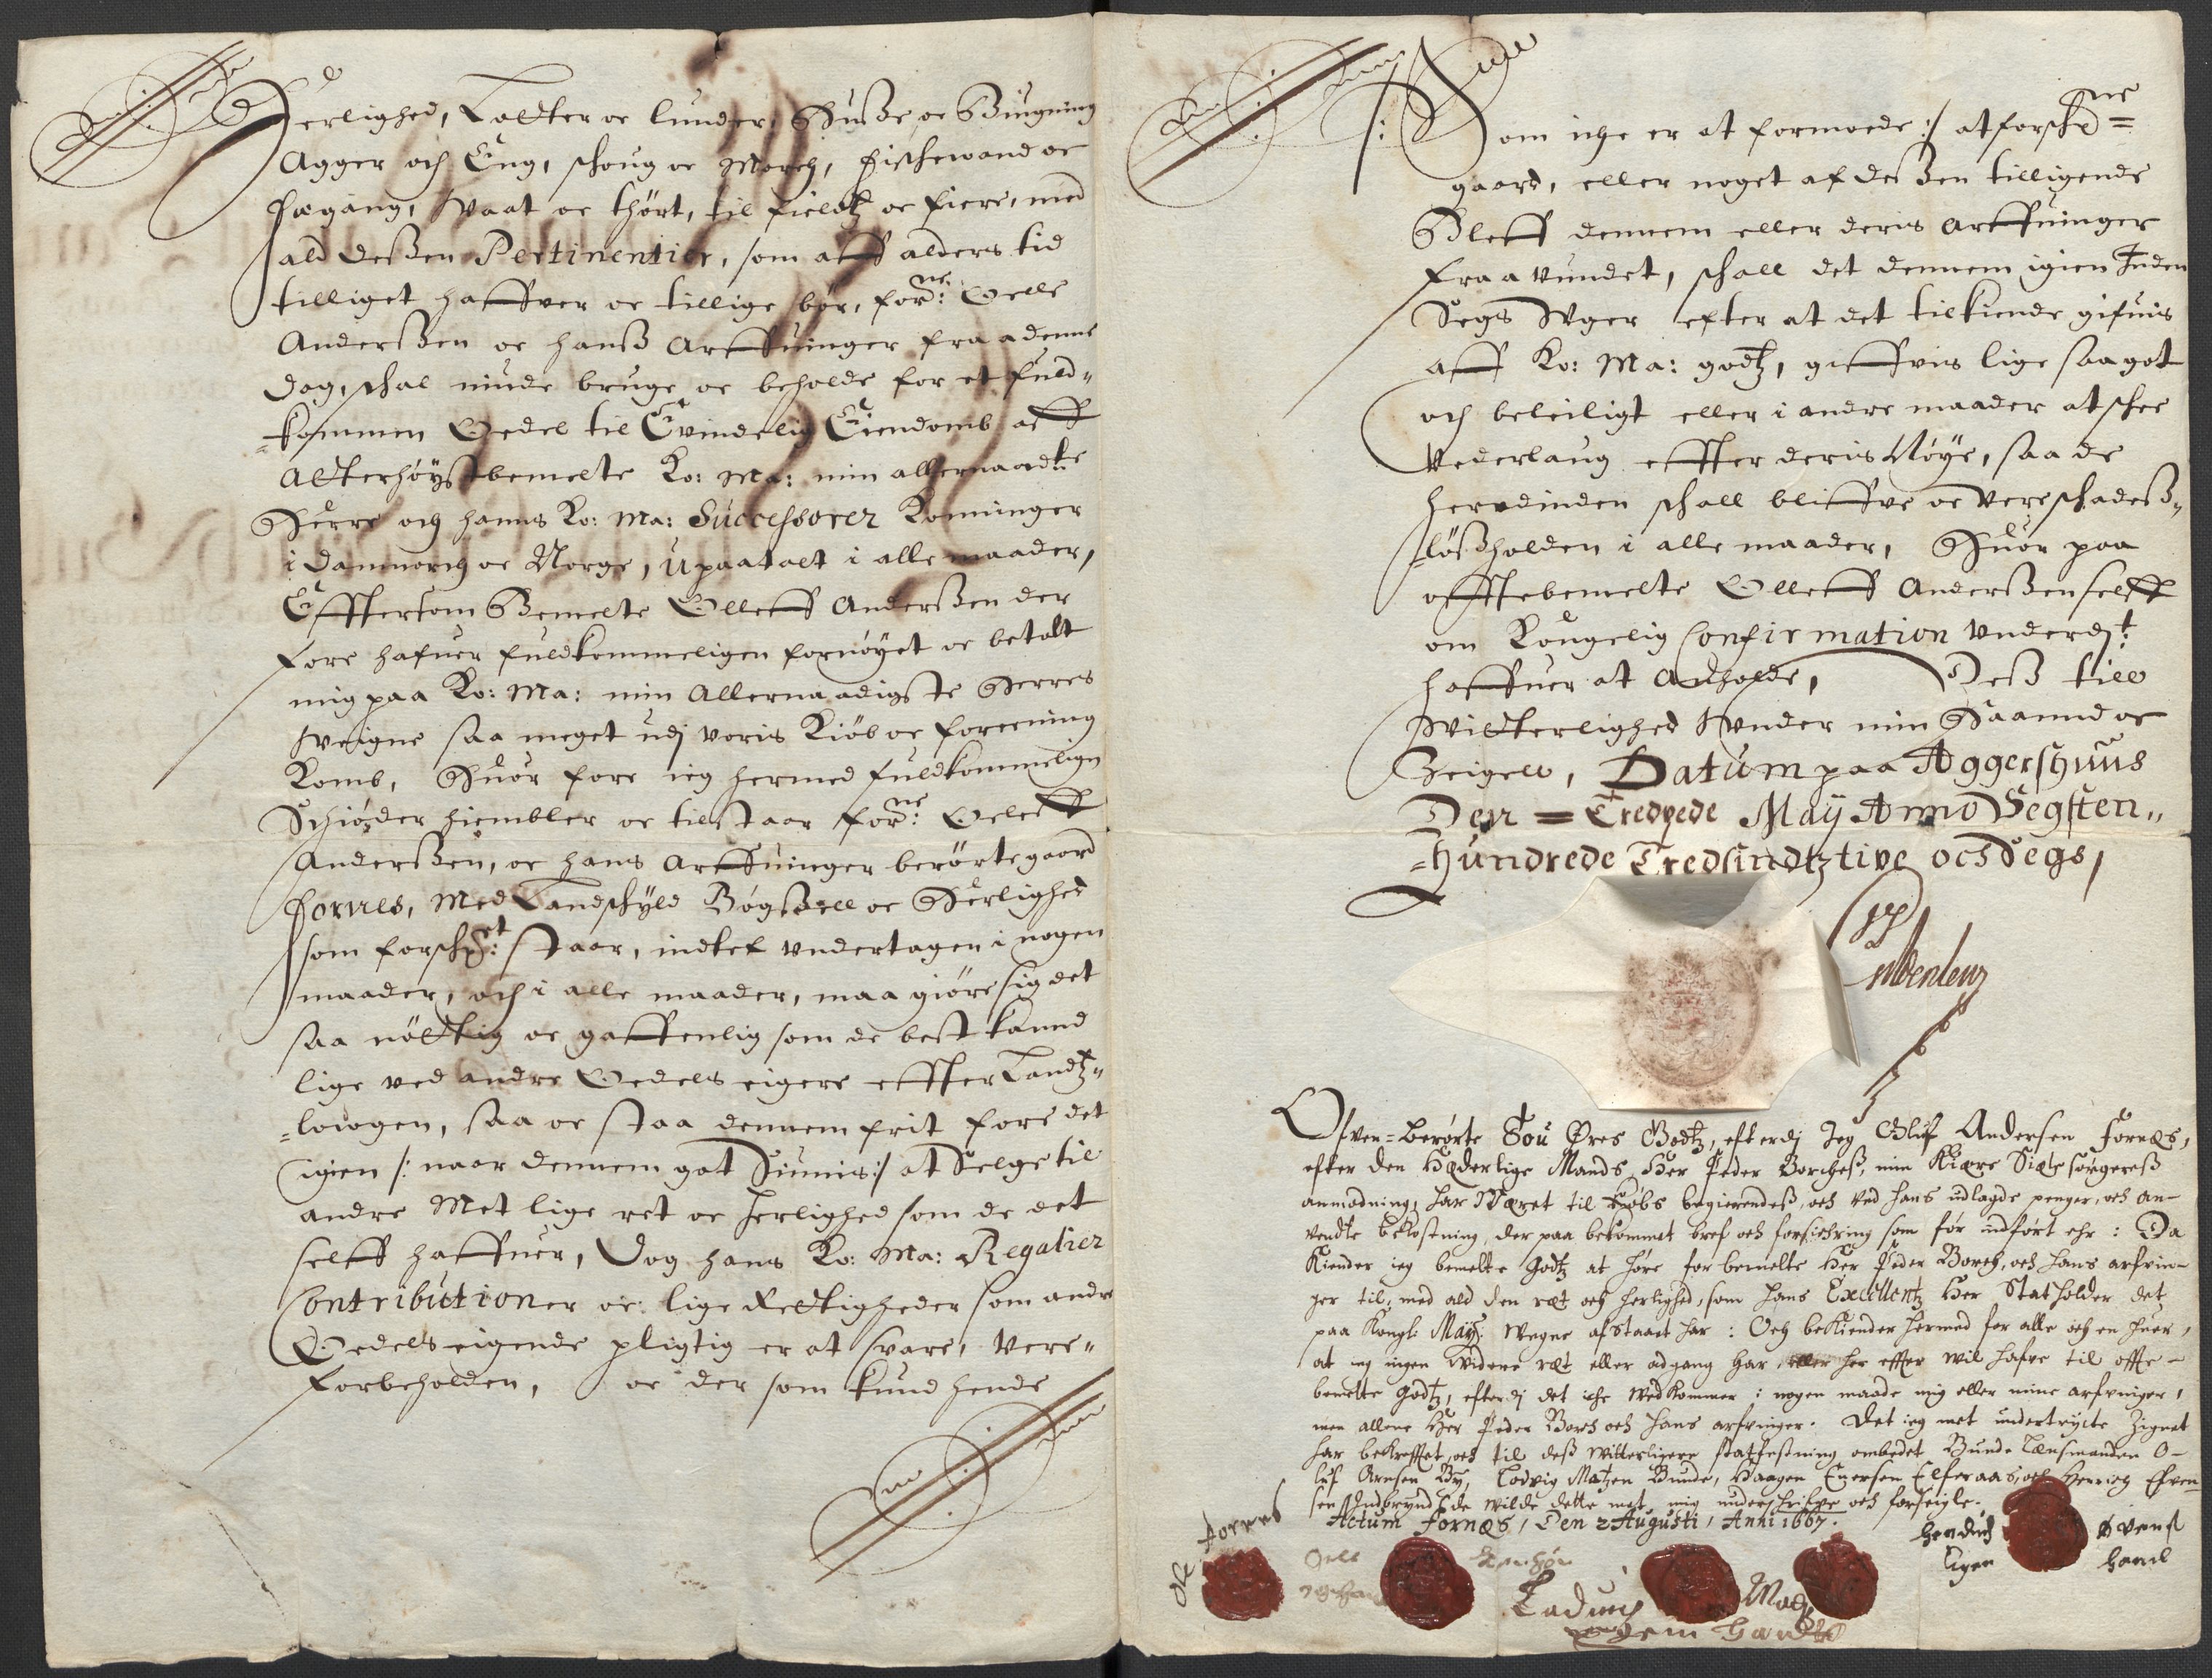 Herlighed, Lotter oc lunder, Husße oc Bügning
Agger och Eng, schoug oc March, fischewand oc
fægang, Waat oc thört, til fieldtz oc fiere, med
ald deßen Pertinentier, som aff alders tid
tilliget haffver oc tillige bör, for:ne Oelle
Anderßen oc hanß Arffuinger fra a denne
dag, schal niude bruge oc beholde for et fuld„
„kommen Oedel til Evindelig Eiendomb aff
Alterhöyst bemelte Ko: Ma: min allernaadte
Herre och hanns Ko: Ma: Successorer Konninger
i Danmorch oc Norge, Upaatalt i alle maader,
Effttersom Bemelte Olleff Anderßen der
fore hafuer fuldkommeligen fornöyet oc betalt
mig paa Ko: Ma: min Allernaadigste Herres
Weigne saa meget udj voris Kiöb oc foreening
Komb, Huor fore ieg hermed fuldkommelign
Schiöder hiembler oc tilstaar for:ne Oeleff
Anderßen, oc hans Arffuinger berörte gaard
fornes, Med Landschyld Bögßell oc Herlighed
som forsch:et staar, indtet undertagen i nogen
maader, och i alle maader, maa giöre sig det
saa nöttig oc gaffenlig som de best kannd
lige ved andre Oedels eigere effter Landtz„
„lougen, saa oc staa dennem frit fore det
igien /: naar dennem got Siunis :/ at Selge til
andre Met lige ret oc herlighed som de det
selff haffuer, Dog hans Ko: Ma: Regalier
Contributioner oc lige Rettigheder som andre
Oedels eigende pligtig er at svare, vere„
forbeholden, oc der som kund hende
/: Som iche er at formoede :/ at forschne=
gaard, eller noget af deßen tilligende
Bleff dennem eller deris Arffuinger
fra a vundet, schall det dennem igien Inden
Segs Uger efter at det tilkiende gifuis
aff Ko: Ma: godtz, giffvis lige saa got
och beleiligt eller i andre maader at schee
Vederlaug effter deris Nöye, saa de
herudinden schall bliffve oc vere schadeß„
„lößholden i alle maader, Huor paa
offtebemelte Olleff Anderßen selff
om Kongelig Confirmation underd:t
haffuer at Anholde, Deß till
Vitterlighed Under min Haannd oc
Zeigell, Datum paa Aggershuus
Den = Tredyede May Anno Segsten„
„hundrede Tredsindtztive och Segs,
Ofven-berørte Tou Øres Godtz, efterdj Jeg Oluf Andersen Fornæs,
efter den Hæderlige Mands Her Peder Borcheß, min Kiære Siælesørgereß
anmodning, har Været til Kiøbs begierendeß, och ved hans udlagde penger, och an-
vendte bekostning, der paa bekommet bref och forsichring som før indført ehr : Da
Kiender ieg bemelte Godtz at høre for bemelte Her Peder Borch, och hans arfvin-
ger til, med ald den ræt och herlighed, som hans Excellentz Her Statholder det
paa Kongl: Maytz: Wegne afstaaet har : Och bekiender hermed for alle och en hver,
at ieg ingen widere ræt eller adgang har, eller her effter wil hafve til offte-
bemelte Godtz, efterdj det iche wedkommer i nogen maade mig eller mine arfvinger,
men allene Her Peder Borch och hans arfvinger. Det ieg met undertrychte Zignet
har bekrefftet, och til deß witterligere statfestning ombedet Bunde Lænsmanden O-
luf Arnsen By, Lodvig Matzen Bunde, Haagen Enersen Elseraas, och Henrich Efven
sen Indbrynd, de wilde dette met mig underschrifve och forseigle.
Actum Fornæs, Den 2 Augusti, Anni 1667.
Ole fornes
Oele
Ladwig Matz
egen Handt
Hendrich Evens
Egen Hand